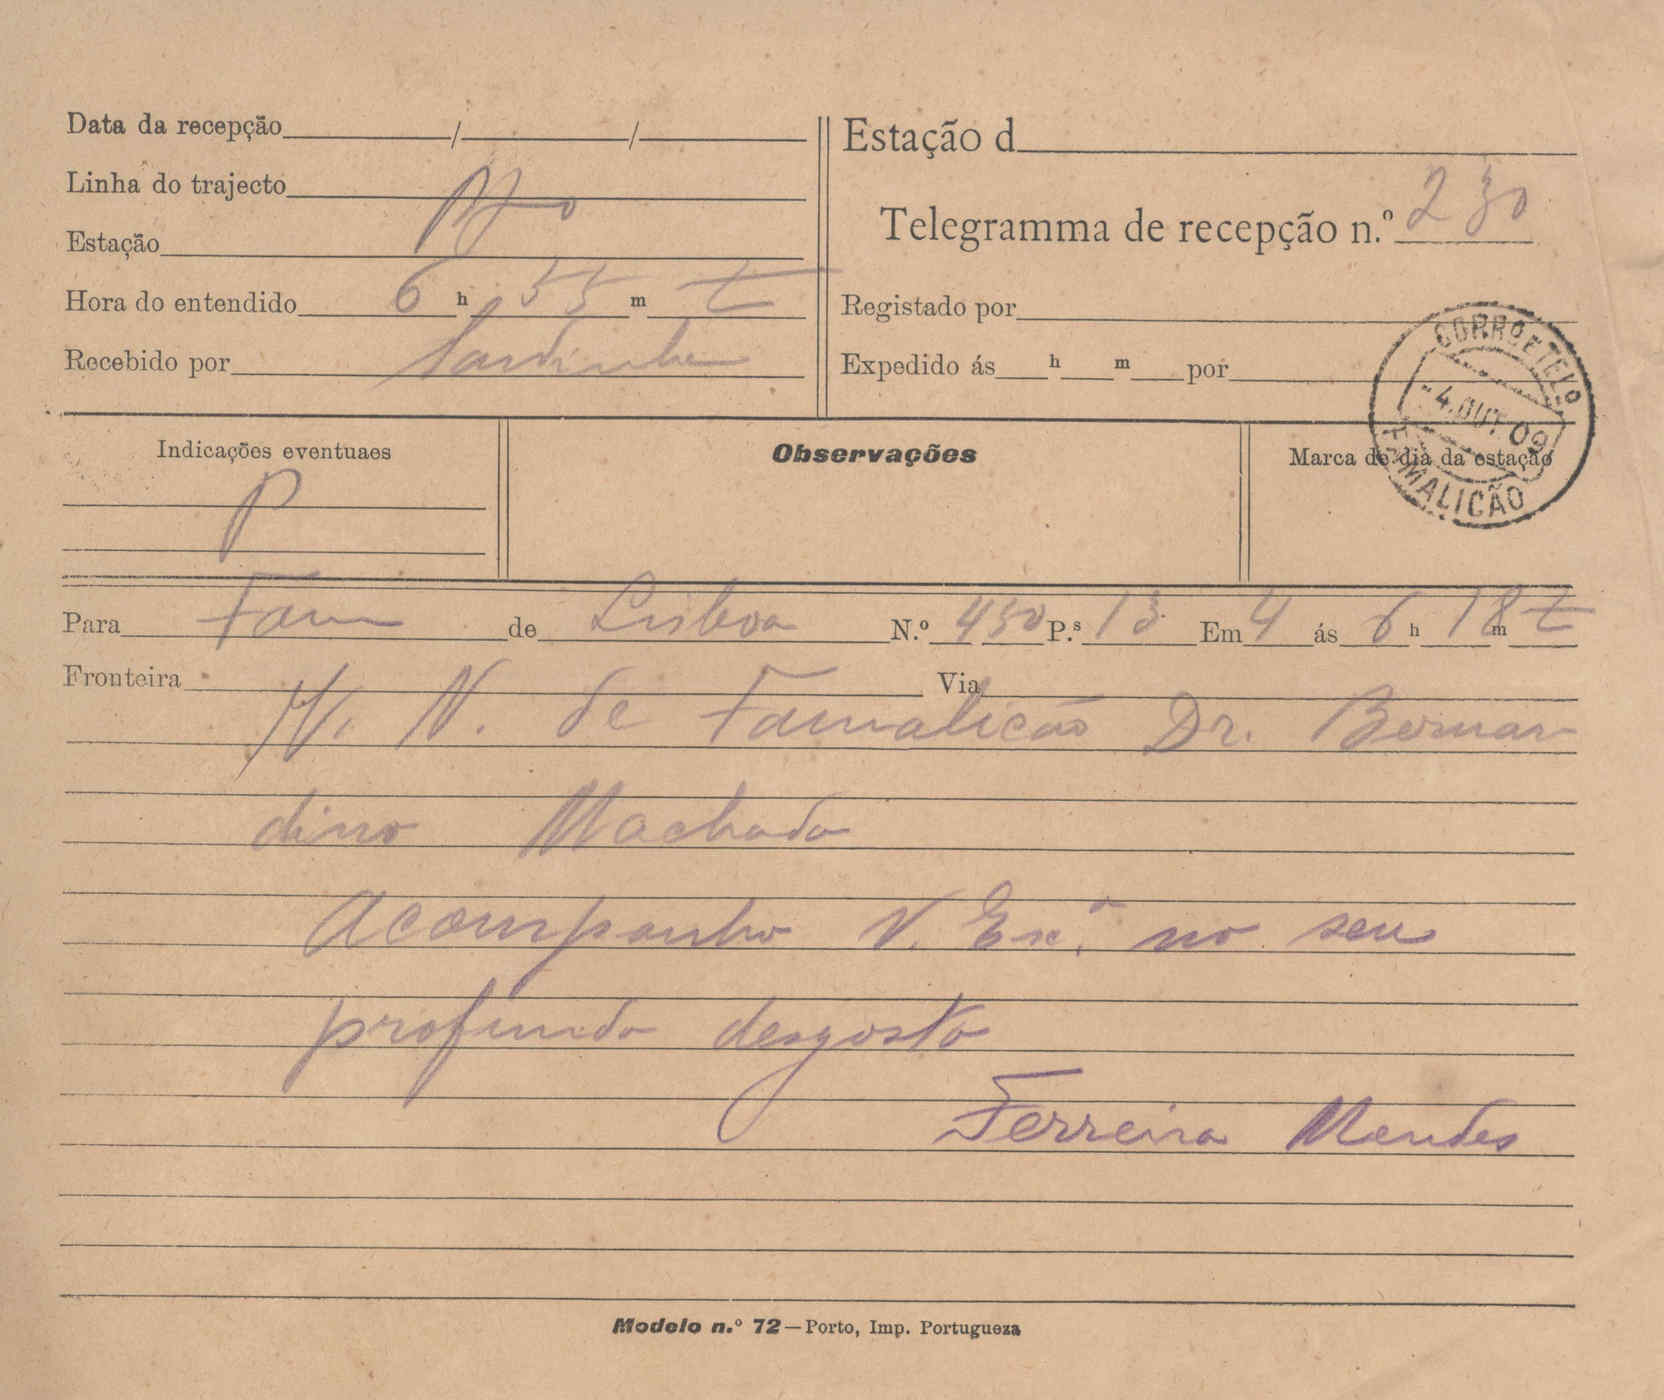 Data da recepção / /
Linha do trajecto
Estação
Hora do entendido 6 h 55 m t
Recebido por Sardinha
Estação d
Telegramma de recepção n.º 230
Registado por
Expedido ás h m por
CORRO E TELO
4. OUT. 09
FAMALICÃO
Indicações eventuaes
P
Observações
Marca de dia da estação
Para Fam de Lisboa N.º 450 P.s 13 Em 4 ás 6 h 18 m t
Fronteira Via
V. N. de Famalicão Dr. Bernar
dino Machado
Acompanho V. Ex.ª no seu
profundo desgosto
Ferreira Mendes
Modelo n.º 72—Porto, Imp. Portugueza